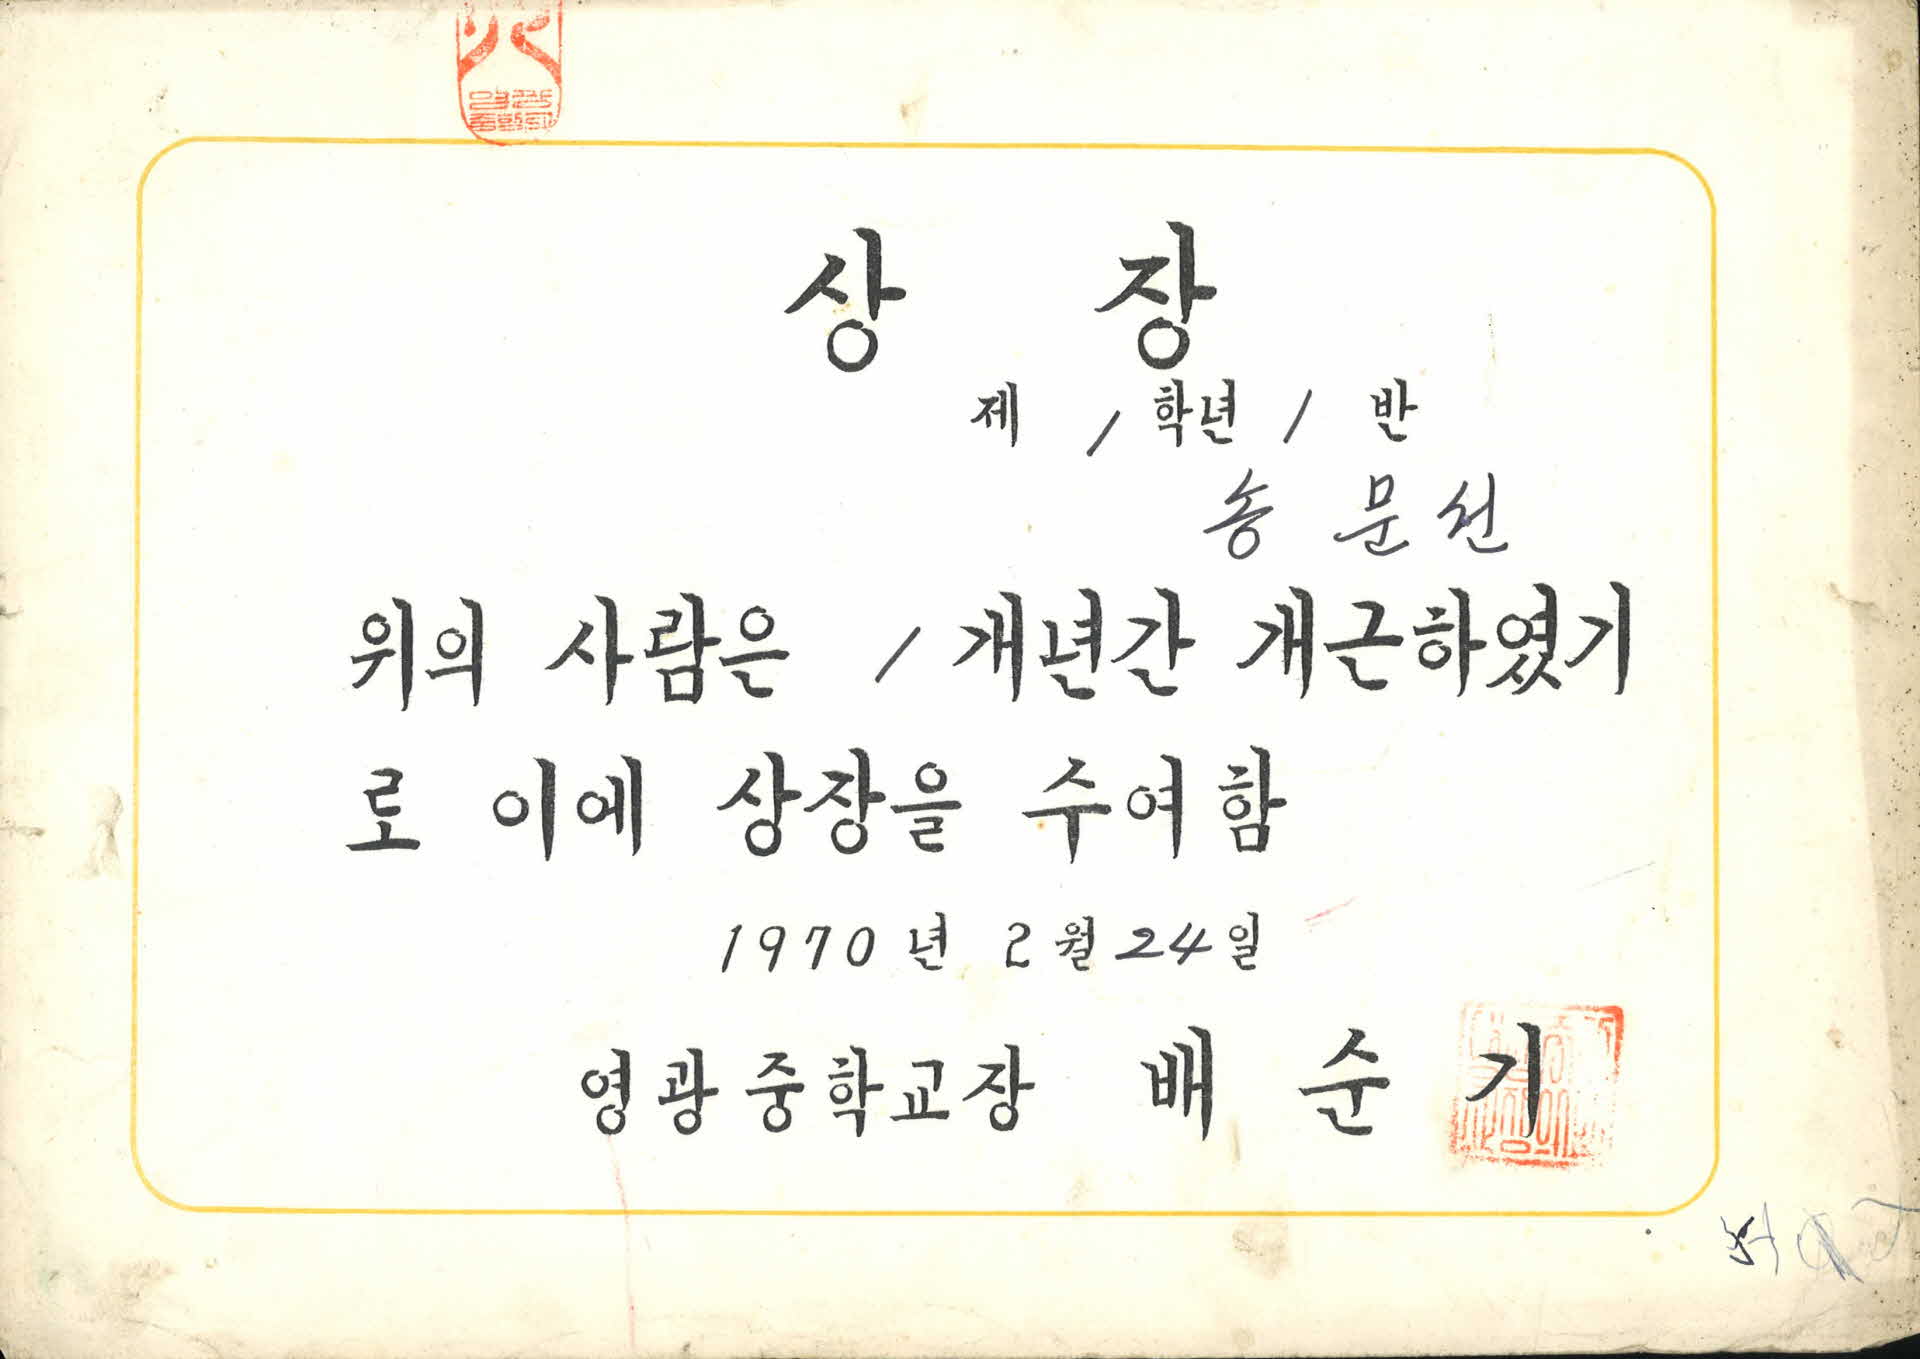 상 장
제 1 학년 1 반
송 문 선
위의 사람은 1 개년간 개근하였기
로 이에 상장을 수여함
1970 년 2 월 24 일
영광중학교장 배 순 기